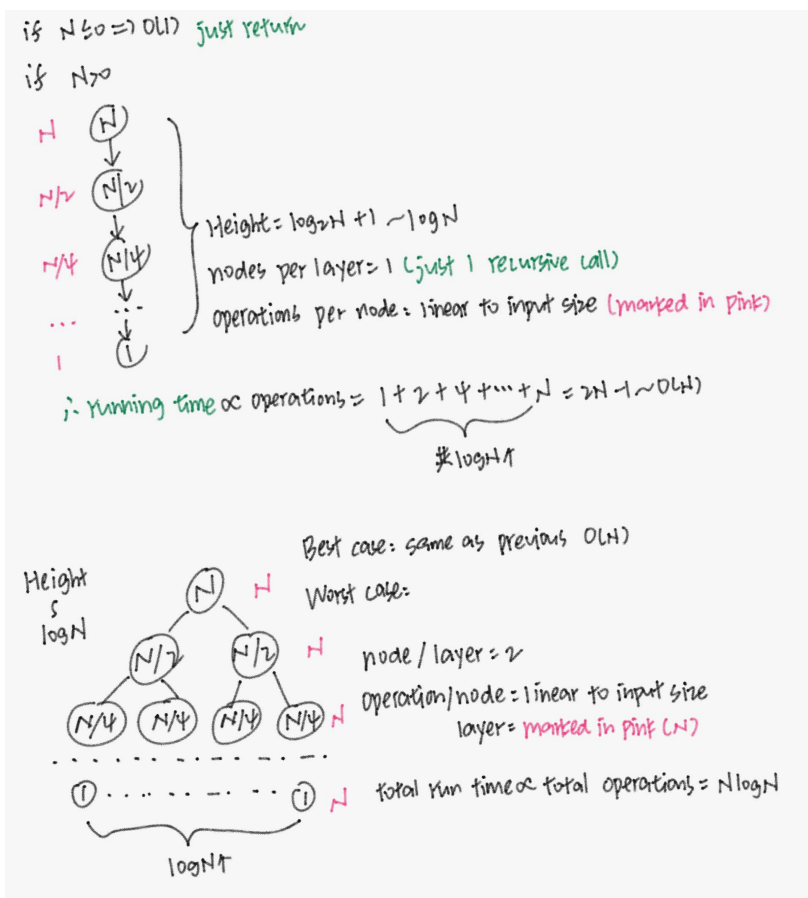 if N≤0 => O(1) just return
if N>0
N N
N/2 N/2
N/4 N/4
Height = log₂N + 1 ~ logN
nodes per layer = 1 (just 1 recursive call)
operations per node: linear to input size (marked in pink)
... ...
1 1
∴ running time ∝ operations = 1 + 2 + 4 + ... + N = 2N - 1 ~ O(N)
共logN个
Best case: same as previous O(N)
Height
~
logN
N N
Worst case:
N/2 N/2 N
node / layer = 2
operation/node: linear to input size
N/4 N/4 N/4 N/4 N
layer = marked in pink (N)
1 ... 1 N
total run time ∝ total operations = NlogN
logN个